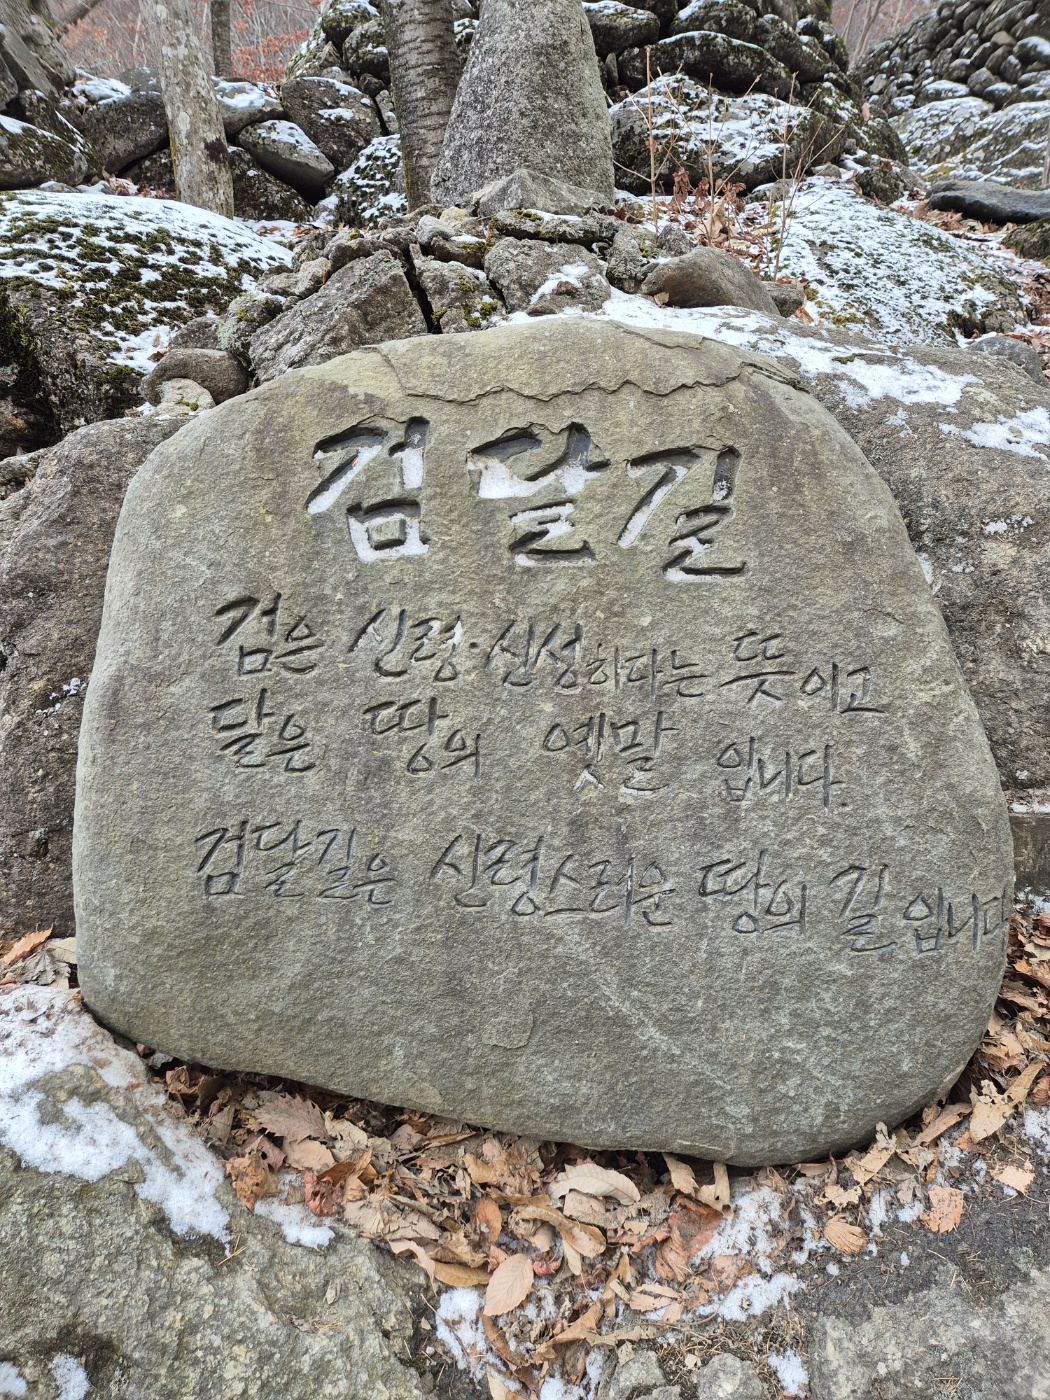 검달길
검은 신령·신성하다는 뜻이고
달은 땅의 옛말 입니다.
검달길은 신령스러운 땅의 길 입니다